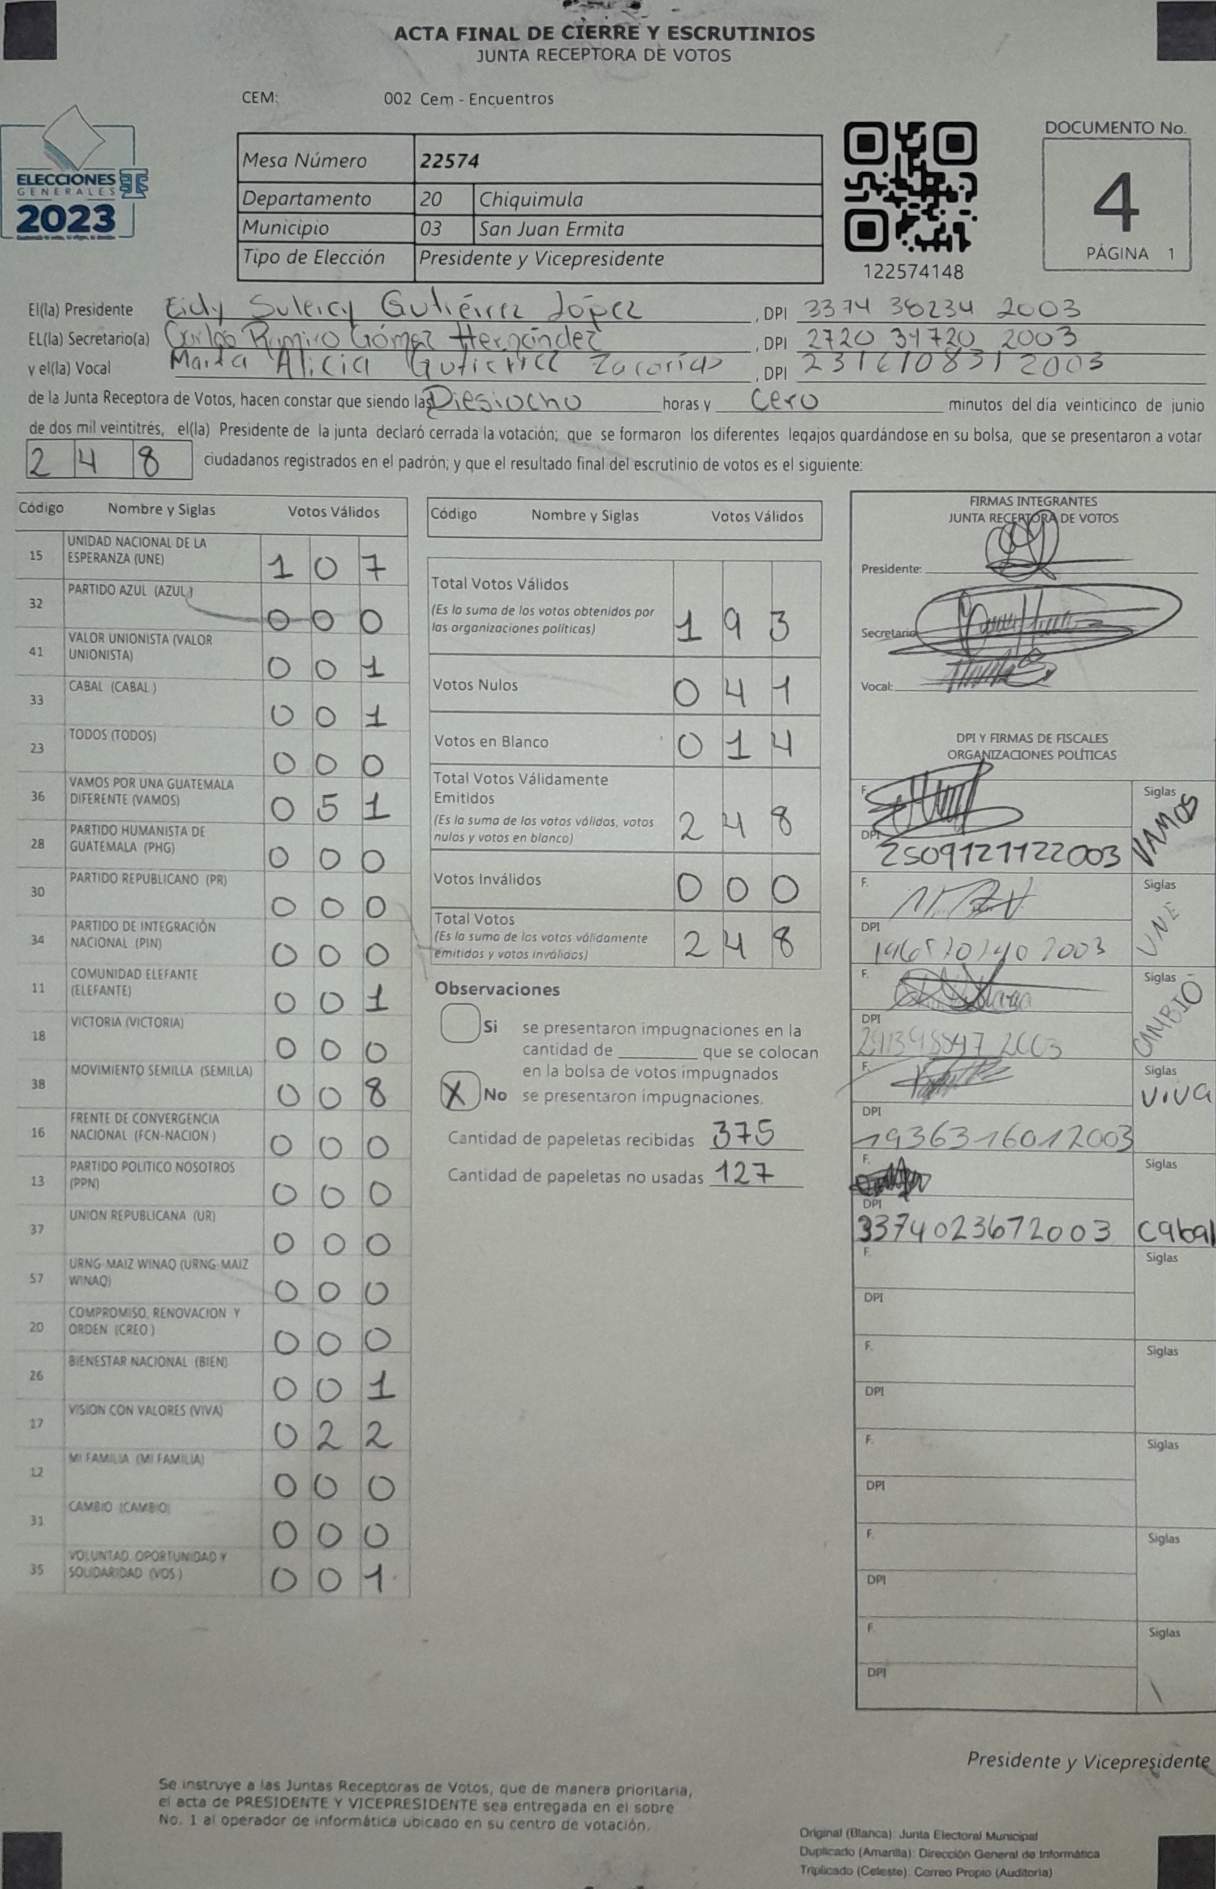 ACTA FINAL DE CIERRE Y ESCRUTINIOS
JUNTA RECEPTORA DE VOTOS
CEM: 002 Cem - Encuentros
ELECCIONES
GENERALES
2023
Mesa Número 22574
Departamento 20 Chiquimula
Municipio 03 San Juan Ermita
Tipo de Elección Presidente y Vicepresidente
122574148
DOCUMENTO No.
4
PÁGINA 1
El(la) Presidente Eidy Suleicy Gutiérrez López, DPI 3374 38234 2003
EL(la) Secretario(a) Carlos Ramiro Gómez Hernández, DPI 2720 34720 2003
y el(la) Vocal Marta Alicia Gutierrez Zacarías, DPI 231610831 2003
de la Junta Receptora de Votos, hacen constar que siendo las Diesiocho horas y Cero minutos del día veinticinco de junio
de dos mil veintitrés, el(la) Presidente de la junta declaró cerrada la votación; que se formaron los diferentes legajos guardándose en su bolsa, que se presentaron a votar
248 ciudadanos registrados en el padrón; y que el resultado final del escrutinio de votos es el siguiente:
Código Nombre y Siglas Votos Válidos
15 UNIDAD NACIONAL DE LA ESPERANZA (UNE) 107
32 PARTIDO AZUL (AZUL) 000
41 VALOR UNIONISTA (VALOR UNIONISTA) 001
33 CABAL (CABAL) 001
23 TODOS (TODOS) 000
36 VAMOS POR UNA GUATEMALA DIFERENTE (VAMOS) 051
28 PARTIDO HUMANISTA DE GUATEMALA (PHG) 000
30 PARTIDO REPUBLICANO (PR) 000
34 PARTIDO DE INTEGRACIÓN NACIONAL (PIN) 000
11 COMUNIDAD ELEFANTE (ELEFANTE) 001
18 VICTORIA (VICTORIA) 000
38 MOVIMIENTO SEMILLA (SEMILLA) 008
16 FRENTE DE CONVERGENCIA NACIONAL (FCN-NACION) 000
13 PARTIDO POLITICO NOSOTROS (PPN) 000
37 UNION REPUBLICANA (UR) 000
57 URNG-MAIZ WINAQ (URNG-MAIZ WINAQ) 000
20 COMPROMISO, RENOVACION Y ORDEN (CREO) 000
26 BIENESTAR NACIONAL (BIEN) 001
17 VISION CON VALORES (VIVA) 022
12 MI FAMILIA (MI FAMILIA) 000
31 CAMBIO (CAMBIO) 000
35 VOLUNTAD, OPORTUNIDAD Y SOLIDARIDAD (VOS) 001
Código Nombre y Siglas Votos Válidos
Total Votos Válidos
(Es la suma de los votos obtenidos por
las organizaciones políticas) 193
Votos Nulos 041
Votos en Blanco 014
Total Votos Válidamente
Emitidos
(Es la suma de los votos válidos, votos
nulos y votos en blanco) 248
Votos Inválidos 000
Total Votos
(Es la suma de los votos válidamente
emitidos y votos inválidos) 248
Observaciones
Si se presentaron impugnaciones en la
cantidad de ________ que se colocan
en la bolsa de votos impugnados
X No se presentaron impugnaciones.
Cantidad de papeletas recibidas 375
Cantidad de papeletas no usadas 127
FIRMAS INTEGRANTES
JUNTA RECEPTORA DE VOTOS
Presidente:
Secretario
Vocal:
DPI Y FIRMAS DE FISCALES
ORGANIZACIONES POLÍTICAS
F. Siglas VAMOS
DPI 2509121122003
F. Siglas UNE
DPI
F. Siglas CAMBIO
DPI
F. Siglas VIVA
DPI 1936316012003
F. Siglas Cabal
DPI 3374023672003
F. Siglas
DPI
F. Siglas
DPI
F. Siglas
DPI
F. Siglas
DPI
F. Siglas
DPI
Presidente y Vicepresidente
Se instruye a las Juntas Receptoras de Votos, que de manera prioritaria,
el acta de PRESIDENTE Y VICEPRESIDENTE sea entregada en el sobre
No. 1 al operador de informática ubicado en su centro de votación.
Original (Blanca): Junta Electoral Municipal
Duplicado (Amarilla): Dirección General de Informática
Triplicado (Celeste): Correo Propio (Auditoría)